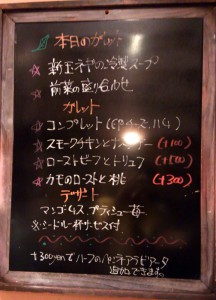 本日のガレット
新玉ネギの冷製スープ
前菜の盛り合わせ
ガレット
コンプレット(卵、チーズ、ハム)
スモークチキンと (+100)
ローストビーフとトリュフ (+500)
カモのローストと桃 (+300)
デザート
マンゴームス プティシュー 苺
※シードル一杯サービス付
+300円で ハーフの
追加できます。